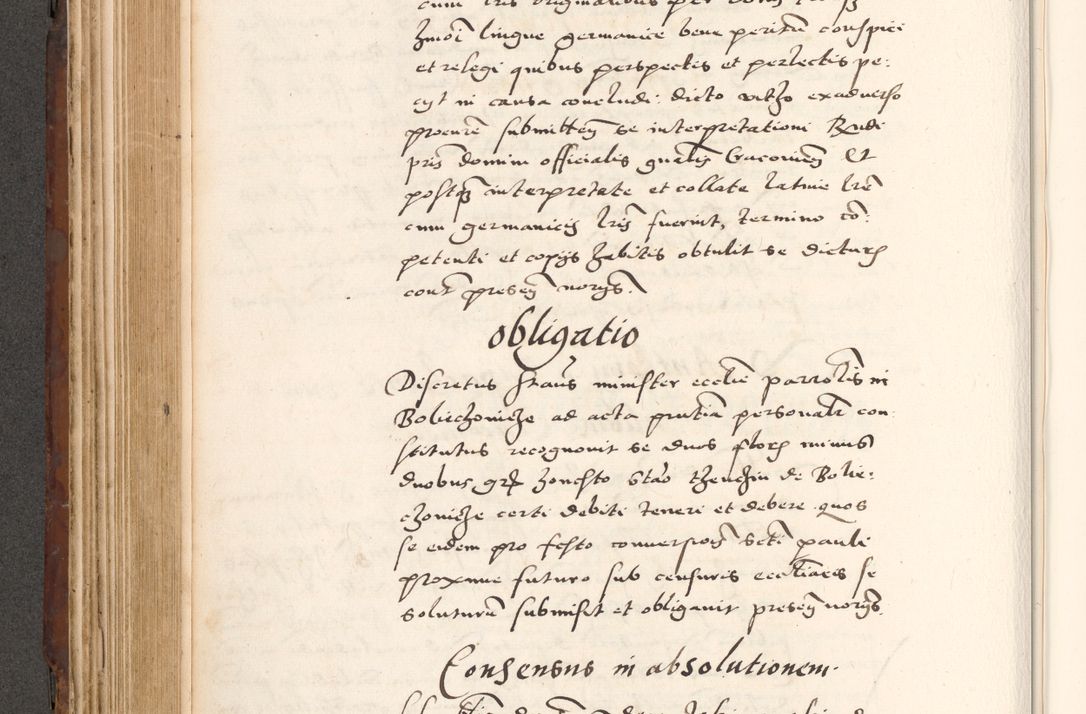 cum lris originalibus per
hmoi lingue germanice bene peritum conspici
et relegi quibus perspectis et perlectis pe:
cyt in causa concludi: dicto vitho exadverso
procure submitten se interpretationi Rndi
pris domini officialis gnalis Cracovien Et
postq interpretate et collate latine lre
cum germanicis lris fuerint, termino co:
petenti et copys habitis obtulit se dictur
cont presen norys.
obligatio
Discretus Staus minister ecclie parrolis in
Boliechowicze ad acta pntia personalr con
stitutus recognovit se duos flor minus
duobus gr honesto Stao de Bolie:
chowicze certi debiti teneri et debere quos
se eidem pro festo conversiois Scti pauli
proxime futuro sub censuris ecclliacis se
soluturu submisit et obligavit presen norys
Consensus in absolutionem.